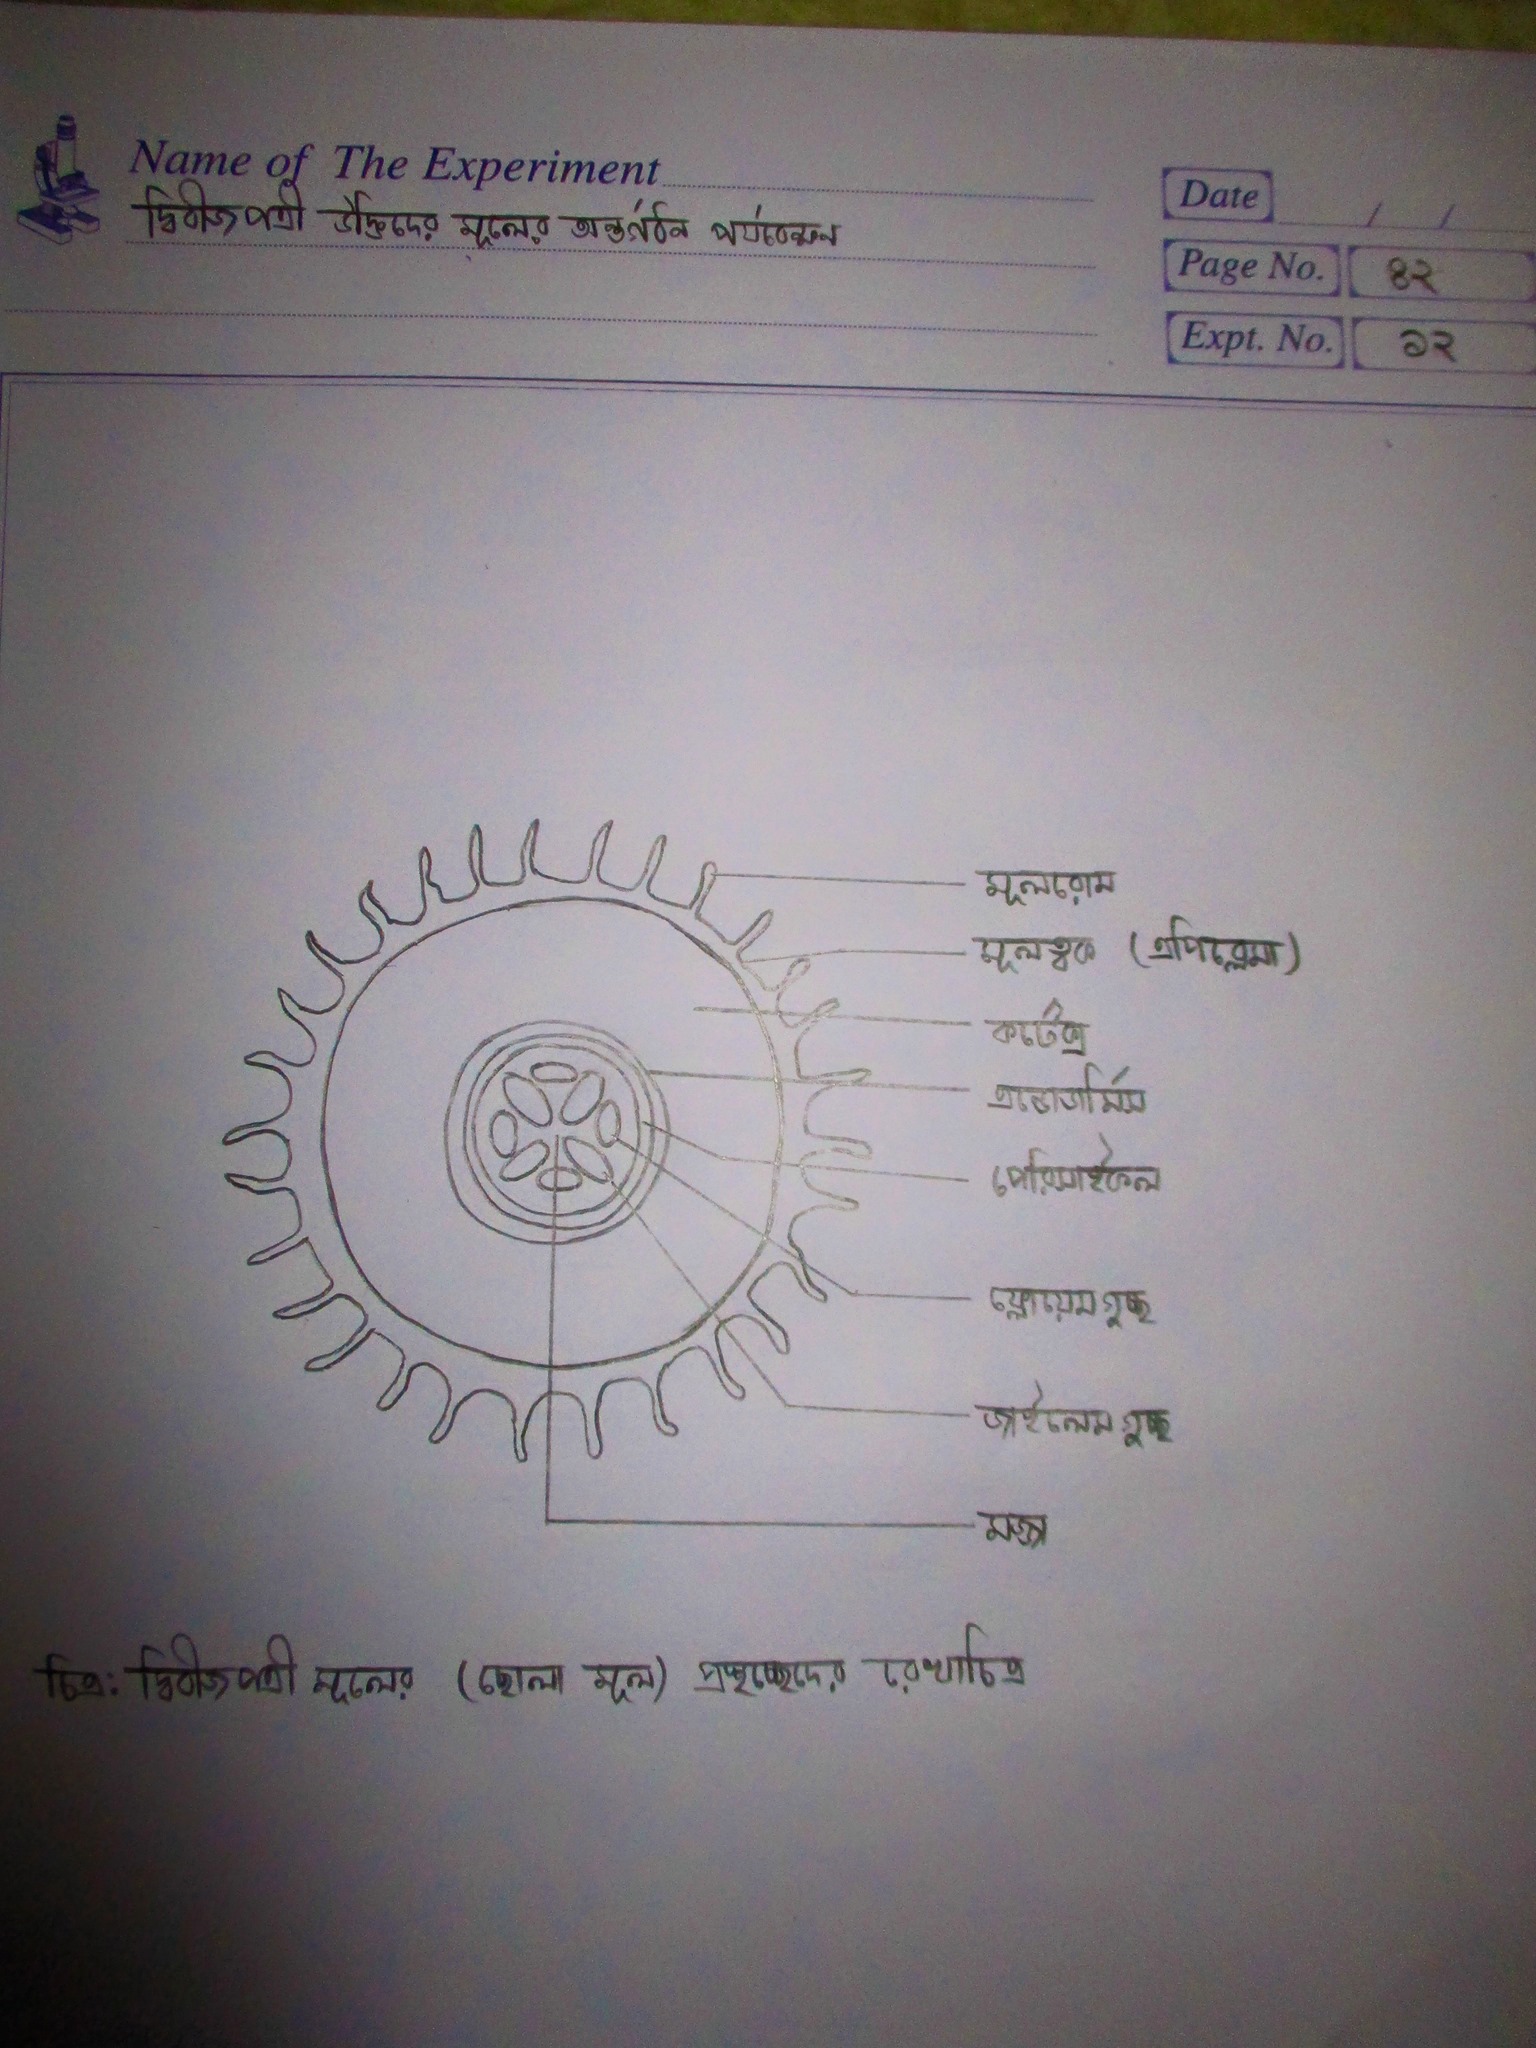 Name of The Experiment
দ্বিবীজপত্রী উদ্ভিদের মূলের অন্তর্গঠন পর্যবেক্ষন
Date / /
Page No. ৪২
Expt. No. ১২
মূলরোম
মূলত্বক (এপিব্লেমা)
কর্টেক্স
এন্ডোডার্মিস
পেরিসাইকেল
ফ্লোয়েমগুচ্ছ
জাইলেমগুচ্ছ
মজ্জা
চিত্র: দ্বিবীজপত্রী মূলের (ছোলা মূল) প্রস্থচ্ছেদের রেখাচিত্র